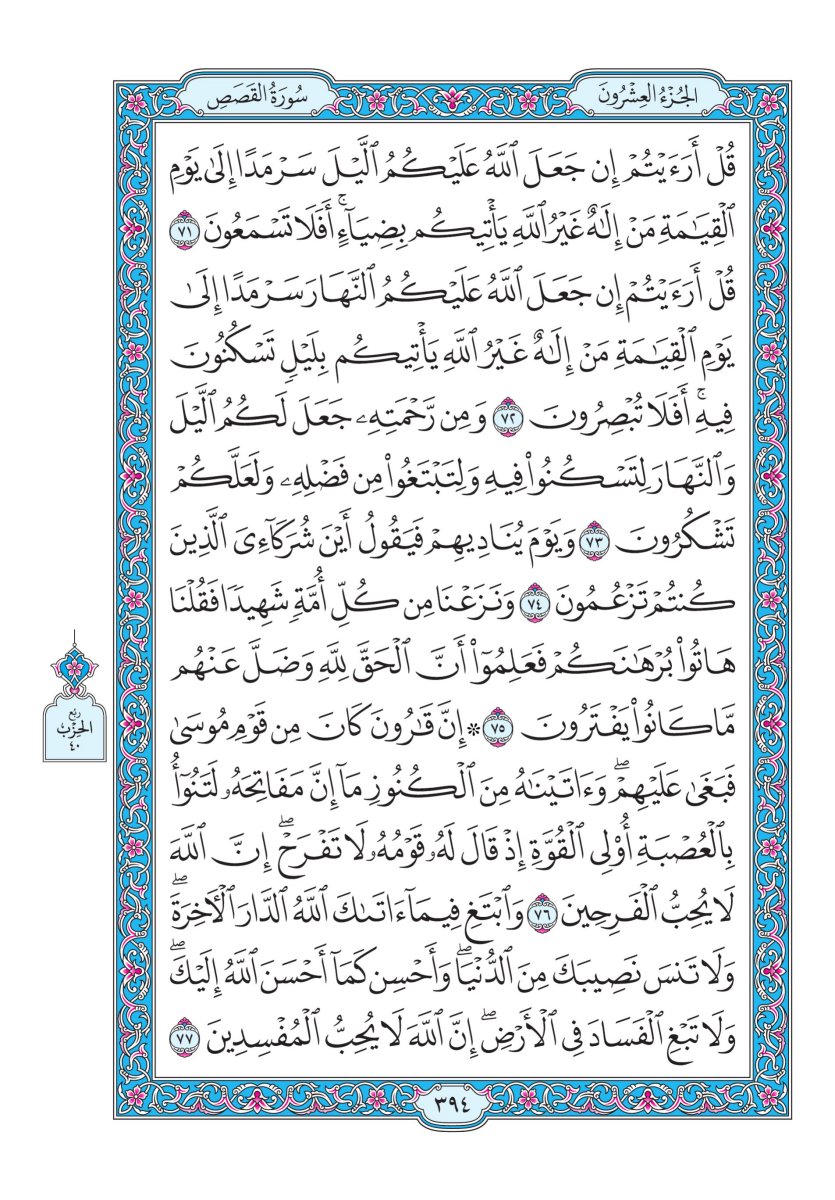 الجُزْءُ العِشْرُونَ
سُورَةُ القَصَصِ
قُلْ أَرَءَيْتُمْ إِن جَعَلَ ٱللَّهُ عَلَيْكُمُ ٱلَّيْلَ سَرْمَدًا إِلَىٰ يَوْمِ
ٱلْقِيَٰمَةِ مَنْ إِلَٰهٌ غَيْرُ ٱللَّهِ يَأْتِيكُم بِضِيَآءٍ ۚ أَفَلَا تَسْمَعُونَ ٧١
قُلْ أَرَءَيْتُمْ إِن جَعَلَ ٱللَّهُ عَلَيْكُمُ ٱلنَّهَارَ سَرْمَدًا إِلَىٰ
يَوْمِ ٱلْقِيَٰمَةِ مَنْ إِلَٰهٌ غَيْرُ ٱللَّهِ يَأْتِيكُم بِلَيْلٍ تَسْكُنُونَ
فِيهِ ۚ أَفَلَا تُبْصِرُونَ ٧٢ وَمِن رَّحْمَتِهِۦ جَعَلَ لَكُمُ ٱلَّيْلَ
وَٱلنَّهَارَ لِتَسْكُنُوا۟ فِيهِ وَلِتَبْتَغُوا۟ مِن فَضْلِهِۦ وَلَعَلَّكُمْ
تَشْكُرُونَ ٧٣ وَيَوْمَ يُنَادِيهِمْ فَيَقُولُ أَيْنَ شُرَكَآءِىَ ٱلَّذِينَ
كُنتُمْ تَزْعُمُونَ ٧٤ وَنَزَعْنَا مِن كُلِّ أُمَّةٍ شَهِيدًا فَقُلْنَا
هَاتُوا۟ بُرْهَٰنَكُمْ فَعَلِمُوٓا۟ أَنَّ ٱلْحَقَّ لِلَّهِ وَضَلَّ عَنْهُم
مَّا كَانُوا۟ يَفْتَرُونَ ٧٥ ۞ إِنَّ قَٰرُونَ كَانَ مِن قَوْمِ مُوسَىٰ
فَبَغَىٰ عَلَيْهِمْ ۖ وَءَاتَيْنَٰهُ مِنَ ٱلْكُنُوزِ مَآ إِنَّ مَفَاتِحَهُۥ لَتَنُوٓأُ
بِٱلْعُصْبَةِ أُو۟لِى ٱلْقُوَّةِ إِذْ قَالَ لَهُۥ قَوْمُهُۥ لَا تَفْرَحْ ۖ إِنَّ ٱللَّهَ
لَا يُحِبُّ ٱلْفَرِحِينَ ٧٦ وَٱبْتَغِ فِيمَآ ءَاتَىٰكَ ٱللَّهُ ٱلدَّارَ ٱلْءَاخِرَةَ ۖ
وَلَا تَنسَ نَصِيبَكَ مِنَ ٱلدُّنْيَا ۖ وَأَحْسِن كَمَآ أَحْسَنَ ٱللَّهُ إِلَيْكَ ۖ
وَلَا تَبْغِ ٱلْفَسَادَ فِى ٱلْأَرْضِ ۖ إِنَّ ٱللَّهَ لَا يُحِبُّ ٱلْمُفْسِدِينَ ٧٧
ربع
الحزب
٤٠
٣٩٤